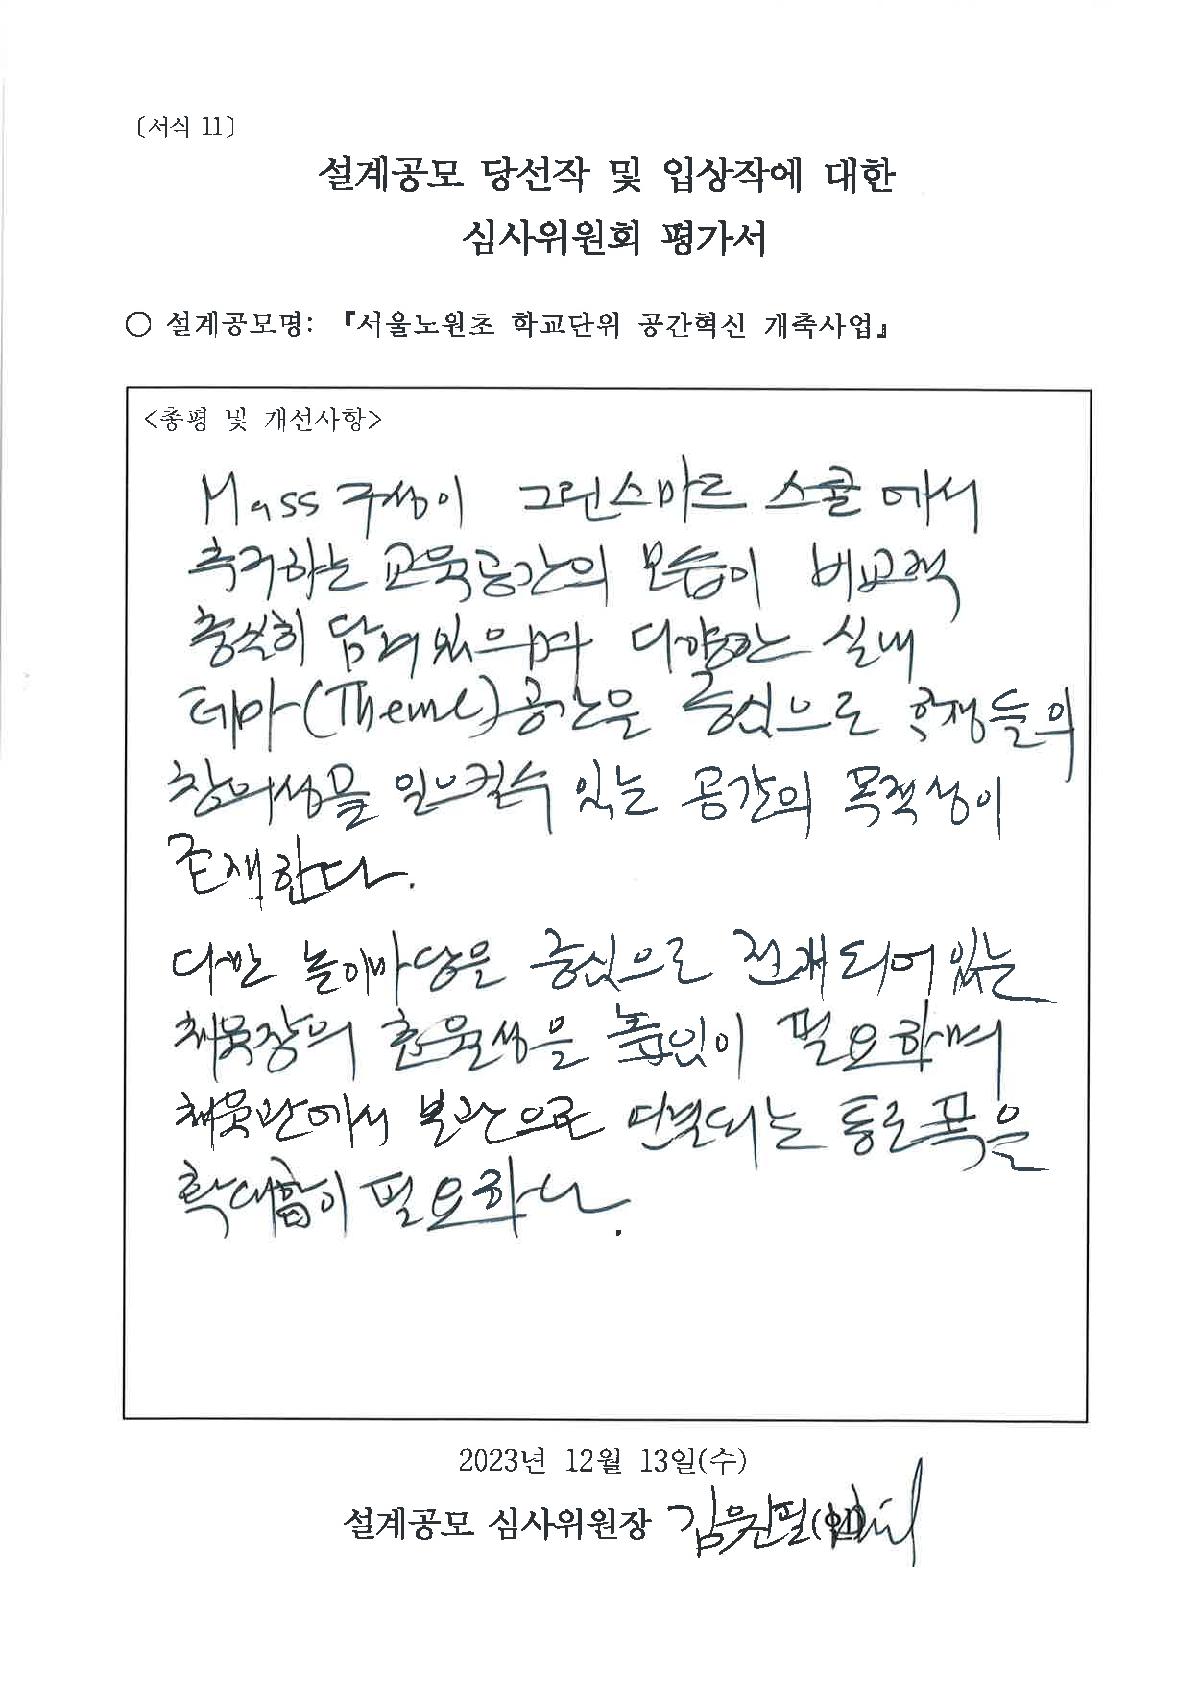 〔서식 11〕
설계공모 당선작 및 입상작에 대한
심사위원회 평가서
○ 설계공모명: 『서울노원초 학교단위 공간혁신 개축사업』
<총평 및 개선사항>
Mass 구성이 그린스마트 스쿨에서
추구하는 교육공간의 모습이 비교적
충실히 담겨있으며 다양한 실내
테마(Theme)공간을 중심으로 학생들의
창의성을 일으킬수 있는 공간의 목적성이
존재한다.
다만 놀이마당을 중심으로 전개되어 있는
체육장의 효율성을 높임이 필요하며
체육관에서 본관으로 연결되는 통로폭을
확대함이 필요하다.
2023년 12월 13일(수)
설계공모 심사위원장 (인)